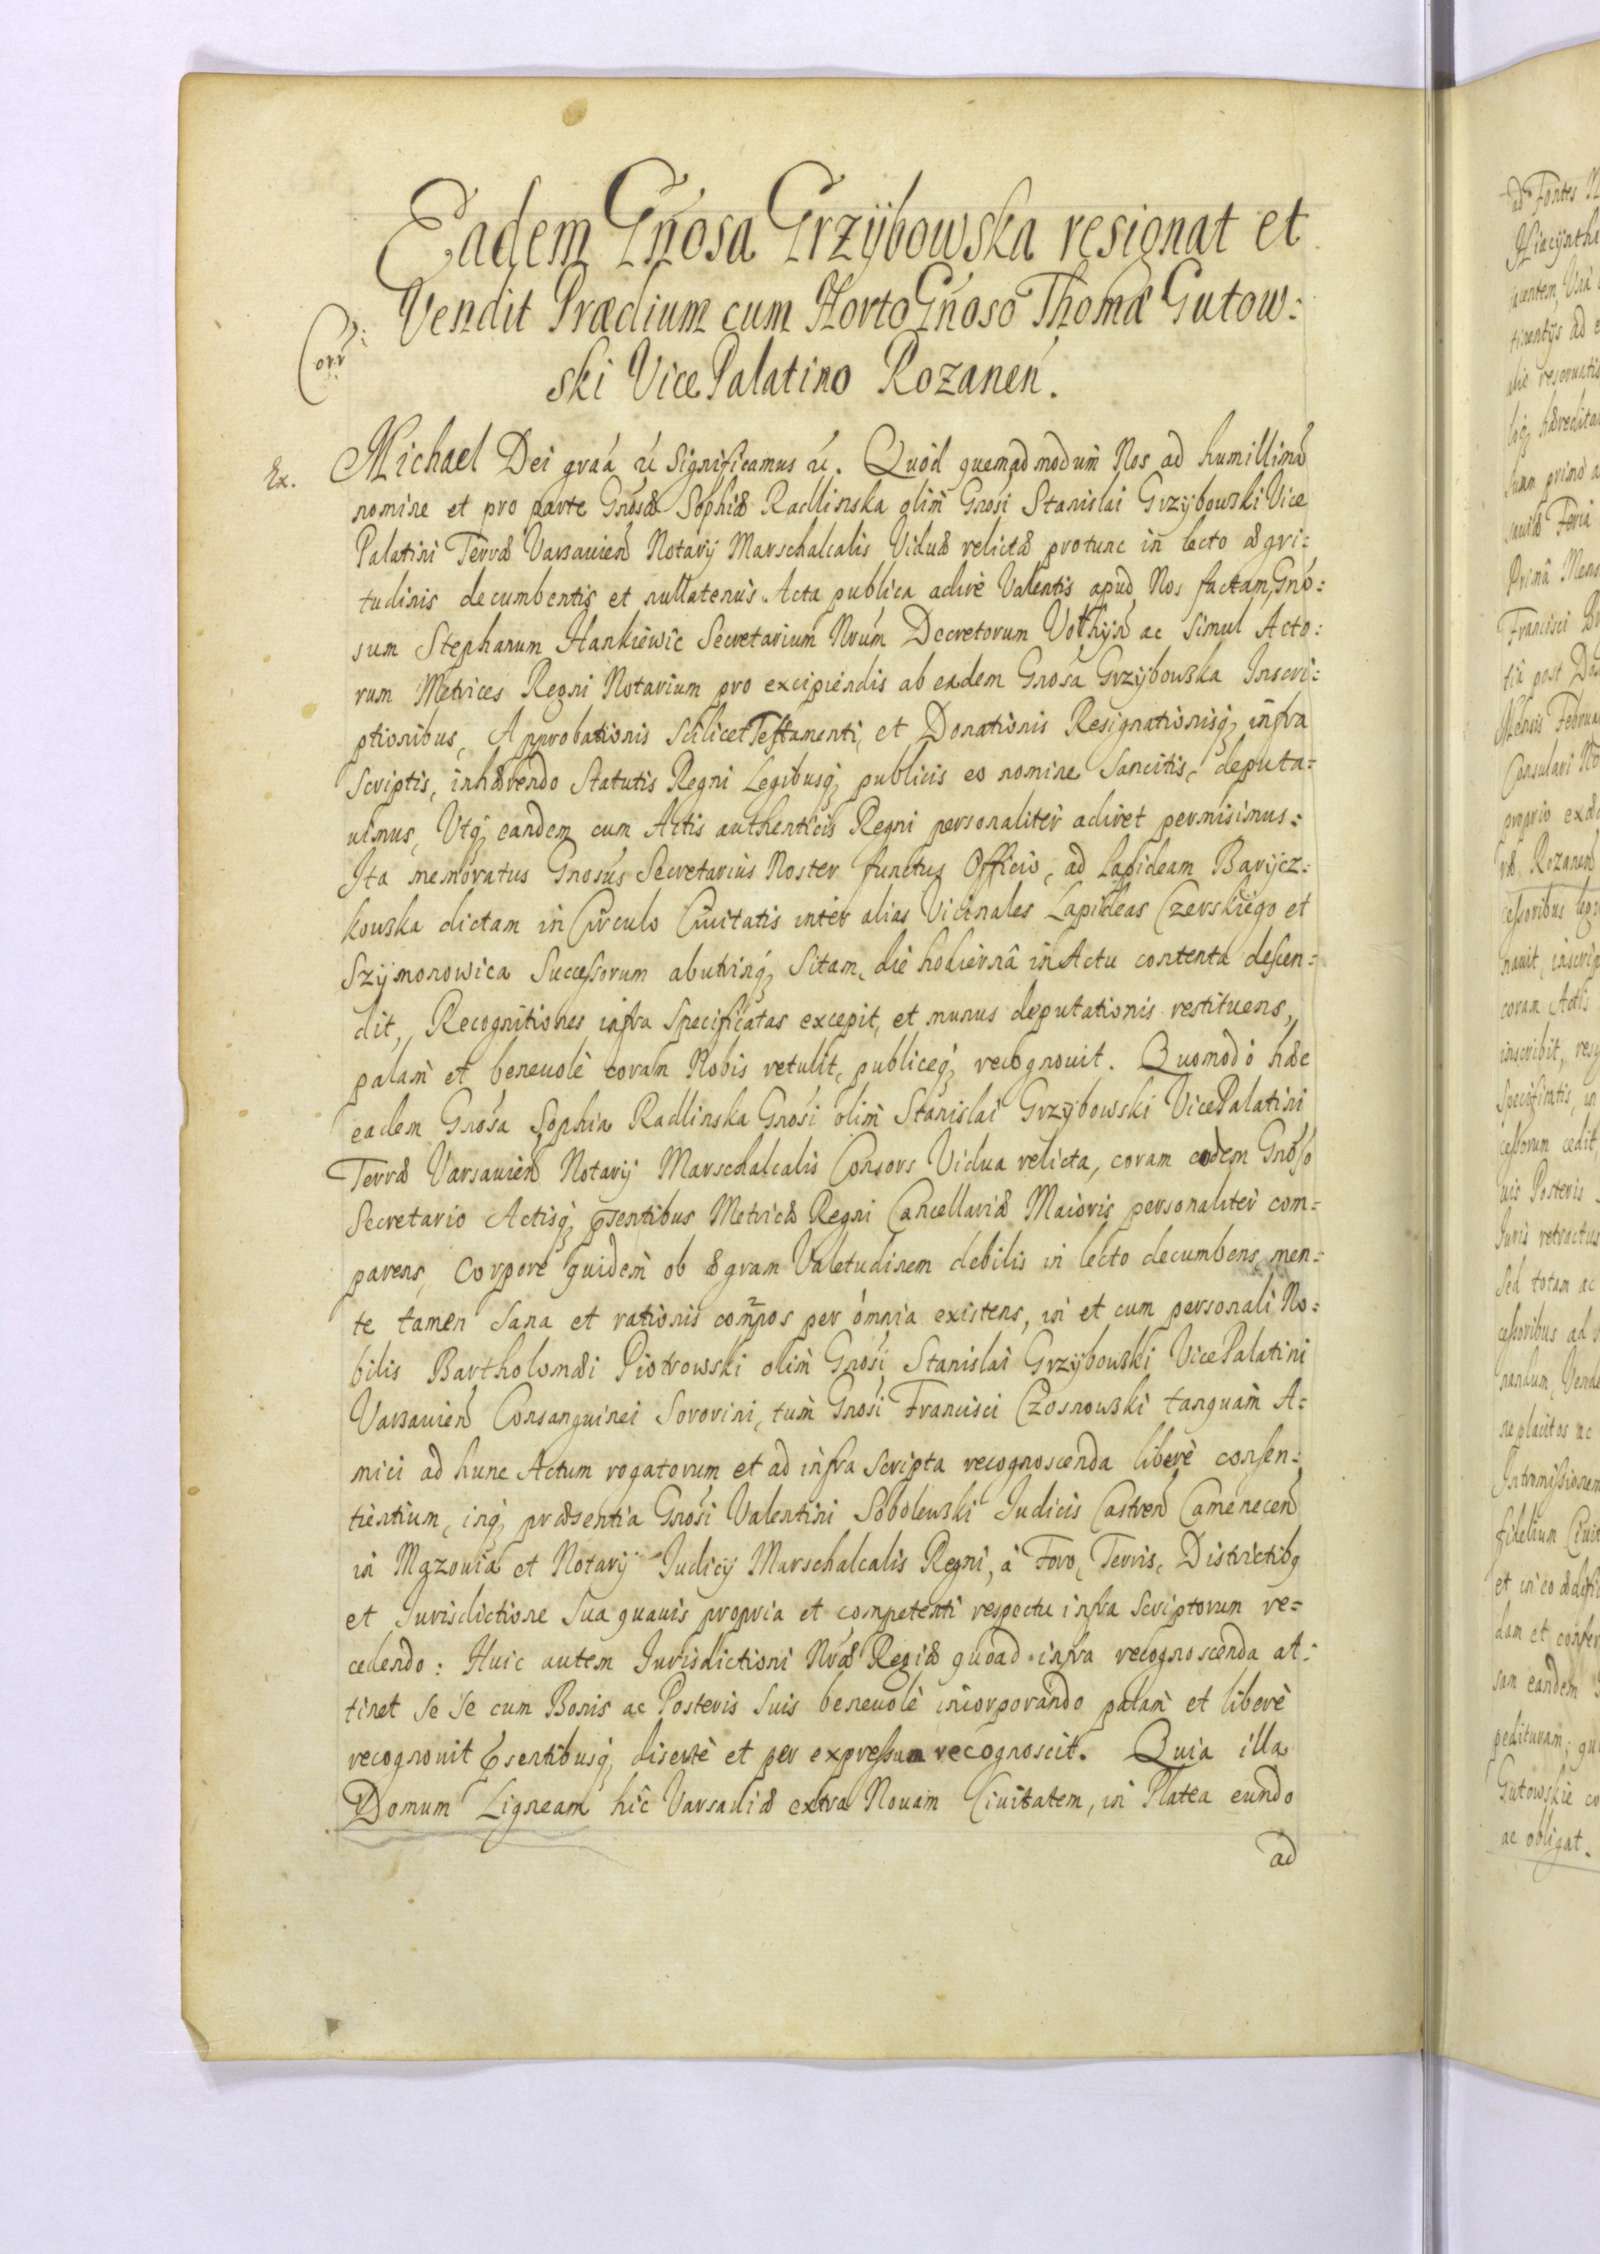 Eadem Gnosa Grzÿbowska resignat et
Vendit Prædium cum Horto Gnoso Thomæ Gutow:
ski Vice Palatino Rozanen.
Corr:
Ex.
Michael Dei graá &c Significamus &c. Quòd quemadmodum Nos ad humillimã
nomine et pro parte Gnosæ Sophiæ Radlinska olim Gnosi Stanislai Grzÿbowski Vice
Palatini Terræ Varsavien Notarÿ Marschalcalis Viduæ relictæ protunc in lecto ægri:
tudinis decumbentis et nullatenus Acta publica adire Valentis apud Nos factam, Gno:
sum Stephanum Hankiewic Secretarium Nrum Decretorum Volhÿn ac simul Acto:
rum Metrices Regni Notarium pro excipiendis ab eadem Gnosa Grzÿbowska Inscri:
ptionibus, Approbationis scilicet Testamenti, et Donationis Resignationisq, infra
scriptis, inhærendo Statutis Regni Legibusq, publicis eo nomine Sancitis, deputa-
uimus, Vtq, eandem cum Actis authenticis Regni personaliter adiret permisimus:
Ita memoratus Gnosus Secretarius Noster functus Officio, ad Lapideam Barÿcz:
kowska dictam in Circulo Ciuitatis inter alias Vicinales Lapideas Czerskiego et
Szÿmonowica Successorum abutrinq, Sitam, die hodiernâ in Actu contenta descen:
dit, Recognitiones infra Specificatas excepit, et munus deputationis restituens,
palam et beneuolè coram Nobis retulit, publiceq, recognouit. Quomodo hæc
eadem Gnosa Sophia Radlinska Gnosi olim Stanislai Grzÿbowski Vice Palatini
Terræ Varsauien Notarÿ Marschalcalis Consors Vidua relicta, coram eodem Gnoso
Secretario Actisq, Psentibus Metricæ Regni Cancellariæ Maioris personaliter com-
parens, Corpore quidem ob ægram Valetudinem debilis in lecto decumbens, men:
te tamen Sana et rationis compos per omnia existens, in et cum personali No:
bilis Bartholomæi Piotrowski olim Gnosi Stanislai Grzÿbowski Vice Palatini
Varsauien Consanguinei Sororini, tum Gnosi Francisci Czosnowski tanquam A:
mici ad hunc Actum rogatorum et ad infra scripta recognoscenda liberè consen:
tientium, inq, præsentia Gnosi Valentini Sobolewski Judicis Castren Camenecen
in Mazouia et Notarÿ Judicÿ Marschalcalis Regni, à Foro, Terris, Districtibq
et Jurisdictione Sua quauis propria et competenti respectu infra scriptorum re-
cedendo: Huic autem Jurisdictioni Nræ Regiæ quoad infra recognoscenda at:
tinet Se Se cum Bonis ac Posteris Suis beneuolè incorporando palam et liberè
recognouit Psentibusq, disertè et per expressum recognoscit. Quia illa
Domum Ligneam hîc Varsauiæ extra Nouam Ciuitatem, in Platea eundo
ad